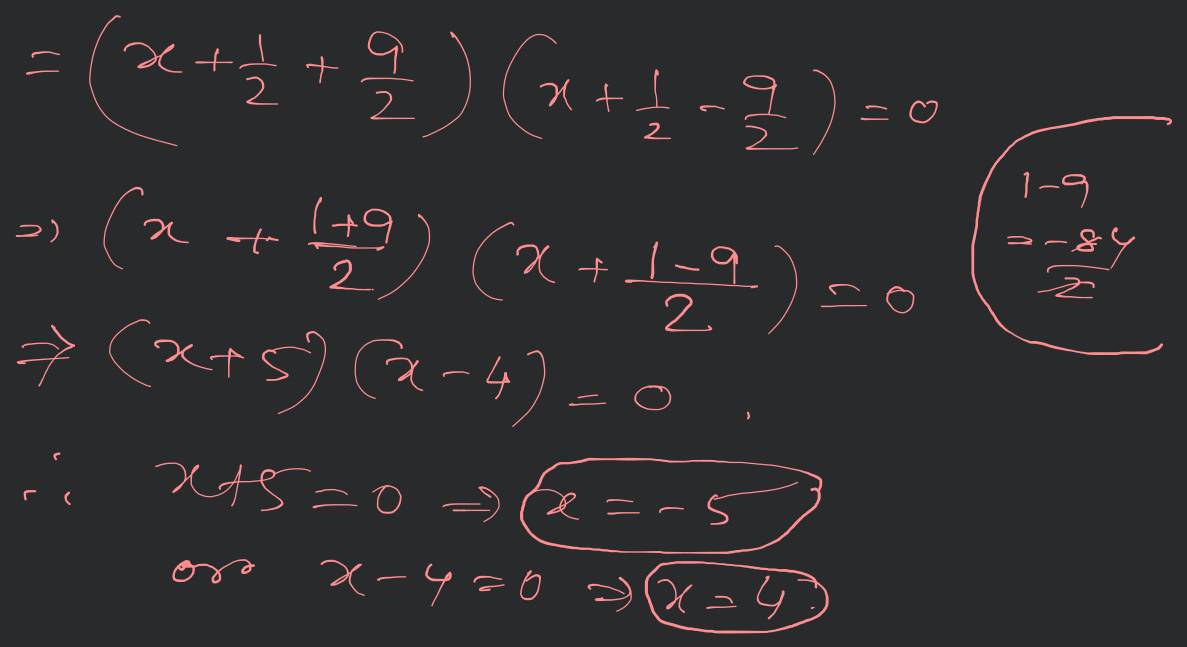 = (x + 1/2 + 9/2) (x + 1/2 - 9/2) = 0
⇒ (x + (1+9)/2) (x + (1-9)/2) = 0
1-9
= -8 4
2
⇒ (x+5) (x-4) = 0.
∴ x+5=0 ⇒ x = -5
or x-4=0 ⇒ x=4.